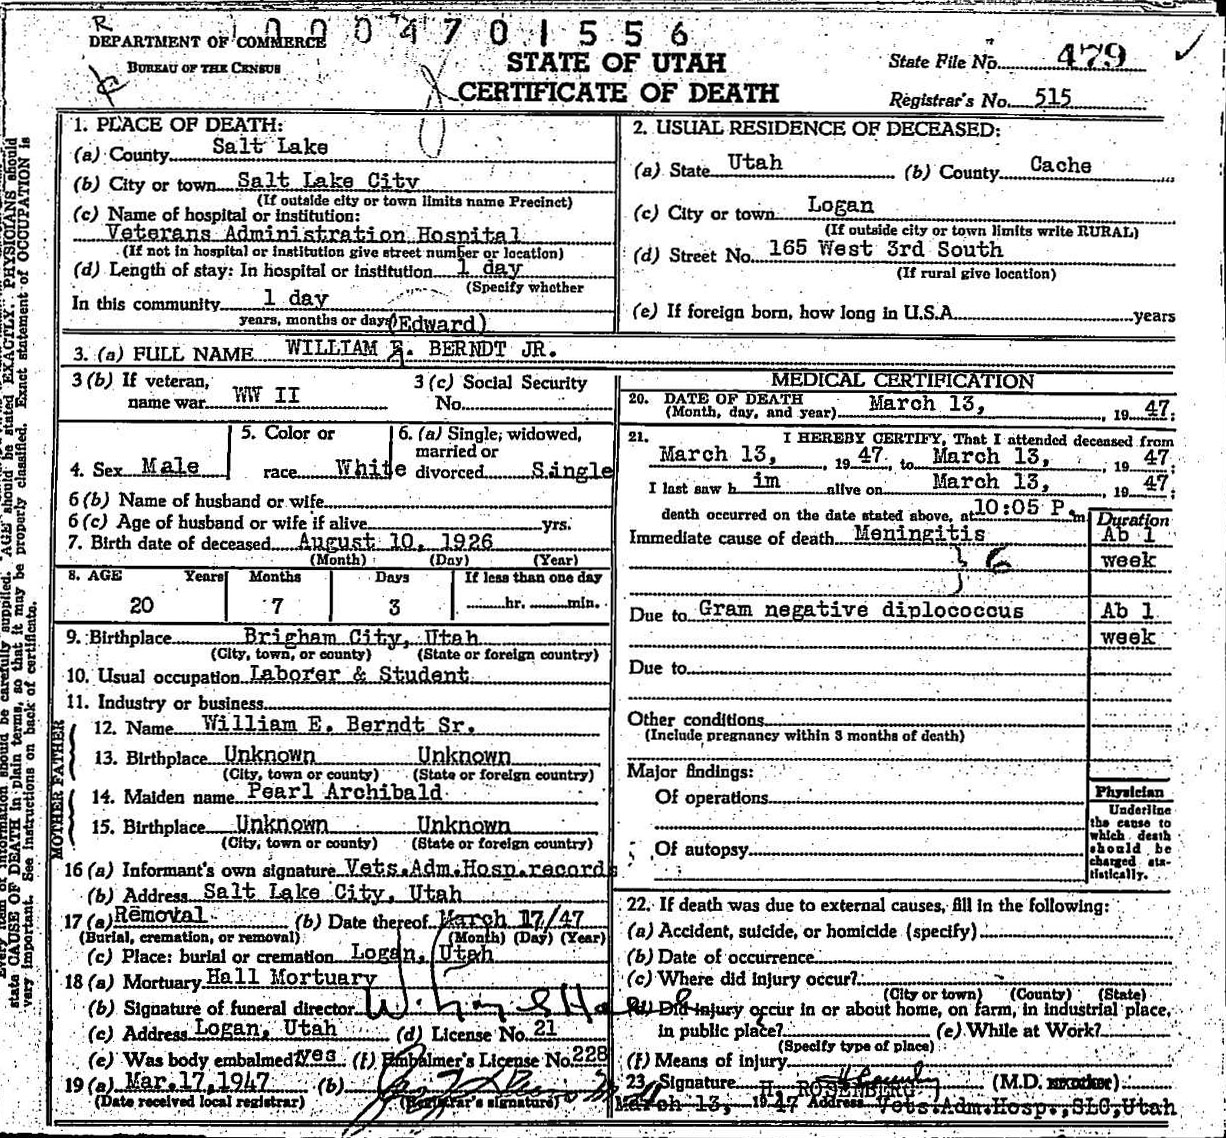 R
0004701556
DEPARTMENT OF COMMERCE
BUREAU OF THE CENSUS
STATE OF UTAH
CERTIFICATE OF DEATH
State File No. 479
Registrar's No. 515
1. PLACE OF DEATH:
(a) County Salt Lake
(b) City or town Salt Lake City
(If outside city or town limits name Precinct)
(c) Name of hospital or institution:
Veterans Administration Hospital
(If not in hospital or institution give street number or location)
(d) Length of stay: In hospital or institution 1 day
(Specify whether
In this community 1 day
years, months or days)
(Edward)
2. USUAL RESIDENCE OF DECEASED:
(a) State Utah (b) County Cache
(c) City or town Logan
(If outside city or town limits write RURAL)
(d) Street No. 165 West 3rd South
(If rural give location)
(e) If foreign born, how long in U.S.A. years
3. (a) FULL NAME WILLIAM E. BERNDT JR.
3 (b) If veteran, name war WW II
3 (c) Social Security No.
4. Sex Male
5. Color or race White
6. (a) Single, widowed, married or divorced Single
6 (b) Name of husband or wife
6 (c) Age of husband or wife if alive yrs.
7. Birth date of deceased August 10, 1926
(Month) (Day) (Year)
8. AGE Years Months Days If less than one day
20 7 3 hr. min.
9. Birthplace Brigham City, Utah
(City, town, or county) (State or foreign country)
10. Usual occupation Laborer & Student
11. Industry or business
FATHER
12. Name William E. Berndt Sr.
13. Birthplace Unknown Unknown
(City, town or county) (State or foreign country)
MOTHER
14. Maiden name Pearl Archibald
15. Birthplace Unknown Unknown
(City, town or county) (State or foreign country)
16 (a) Informant's own signature Vets.Adm.Hosp.records
(b) Address Salt Lake City, Utah
17 (a) Removal (b) Date thereof March 17/47
(Burial, cremation, or removal) (Month) (Day) (Year)
(c) Place: burial or cremation Logan, Utah
18 (a) Mortuary Hall Mortuary
(b) Signature of funeral director
(c) Address Logan, Utah (d) License No. 21
(e) Was body embalmed? yes (f) Embalmer's License No. 228
19 (a) Mar.17,1947 (b)
(Date received local registrar) (Registrar's signature)
MEDICAL CERTIFICATION
20. DATE OF DEATH
(Month, day, and year) March 13, 1947;
21. I HEREBY CERTIFY, That I attended deceased from
March 13, 1947, to March 13, 1947;
I last saw him alive on March 13, 1947;
death occurred on the date stated above, at 10:05 P.m
Duration
Immediate cause of death Meningitis Ab 1
week
Due to Gram negative diplococcus Ab 1
week
Due to
Other conditions
(Include pregnancy within 3 months of death)
Major findings:
Of operations
Of autopsy
Physician
Underline
the cause to
which death
should be
charged sta-
tistically.
22. If death was due to external causes, fill in the following:
(a) Accident, suicide, or homicide (specify)
(b) Date of occurrence
(c) Where did injury occur?
(City or town) (County) (State)
(d) Did injury occur in or about home, on farm, in industrial place,
in public place? (e) While at Work?
(Specify type of place)
(f) Means of injury
23. Signature H. ROSENBERG (M.D.
March 13, 1947 Address Vets.Adm.Hosp.,SLC,Utah
Every item of information should be carefully supplied. AGE should be stated EXACTLY. PHYSICIANS should
state CAUSE OF DEATH in plain terms, so that it may be properly classified. Exact statement of OCCUPATION is
very important. See instructions on back of certificate.